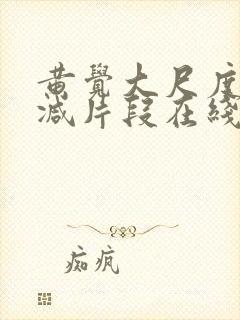 黄覺大尺度
减片段在綫
痴疯